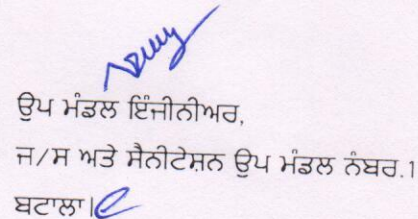 ਉਪ ਮੰਡਲ ਇੰਜੀਨੀਅਰ,
ਜ/ਸ ਅਤੇ ਸੈਨੀਟੇਸ਼ਨ ਉਪ ਮੰਡਲ ਨੰਬਰ.1
ਬਟਾਲਾ।